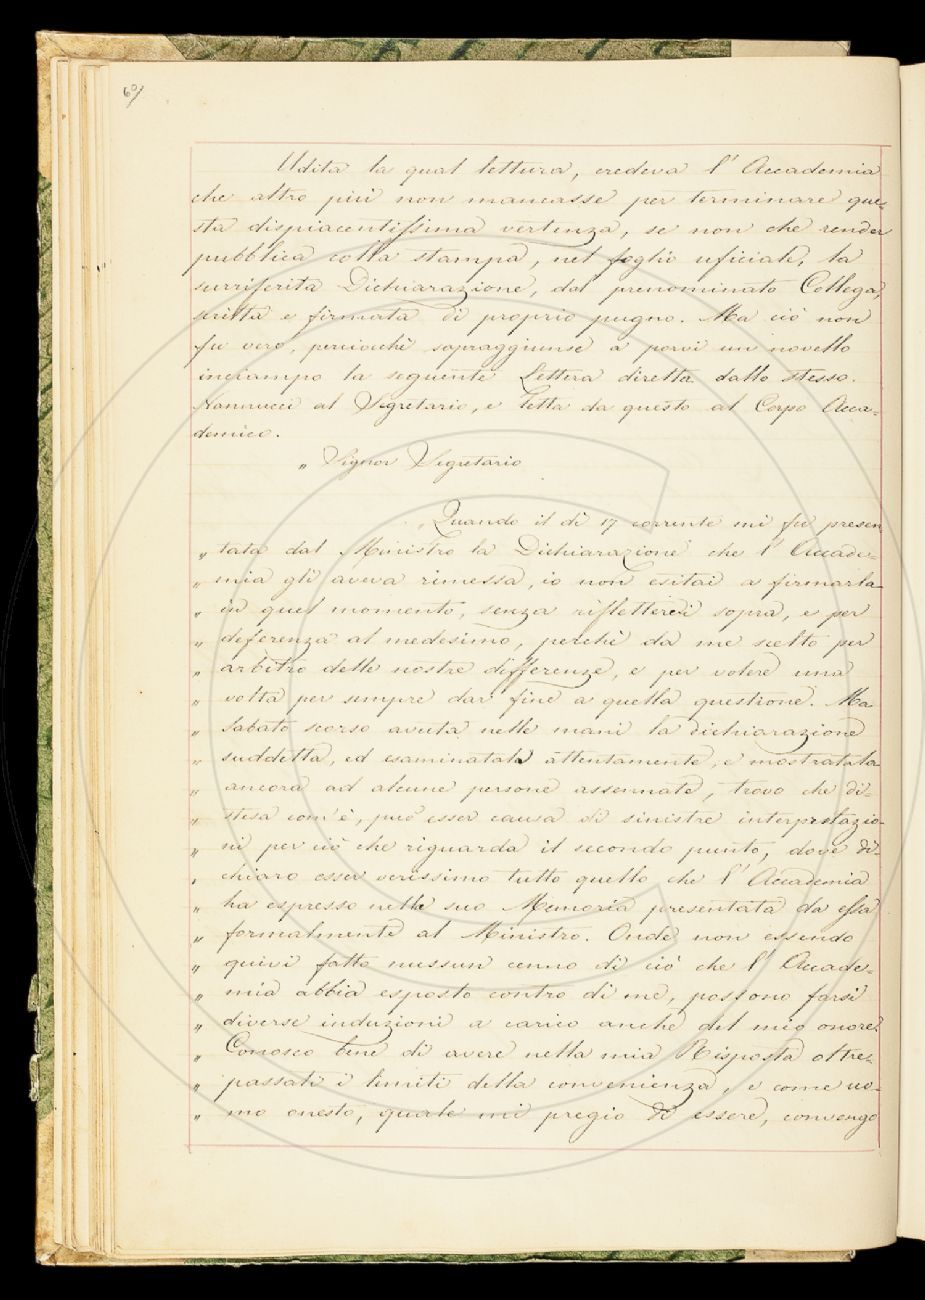 60
Udita la qual lettura, credeva l'Accademia
che altro più non mancasse per terminare que-
sta dispiacentissima vertenza, se non che render
pubblica colla stampa, nel foglio uficiale, la
surriferita Dichiarazione, dal prenominato Collega,
scritta e firmata di proprio pugno. Ma ciò non
fu vero, perciocchè sopraggiunse a porvi un novello
inciampo la seguente Lettera diretta dallo stesso
Nannucci al Segretario, e letta da questo al Corpo Acca-
demico.
„ Signor Segretario
„ Quando il dì 17 corrente mi fu presen
„ tata dal Ministro la Dichiarazione che l'Accade-
„ mia gli aveva rimessa, io non esitai a firmarla
„ in quel momento, senza riflettervi sopra, e per
„ deferenza al medesimo, perchè da me scelto per
„ arbitro delle nostre differenze, e per volere una
„ volta per sempre dar fine a quella questione. Ma
„ Sabato scorso avuta nelle mani la dichiarazione
„ suddetta, ed esaminatala attentamente, e mostratala
„ ancora ad alcune persone assennate, trovo che di-
„ stesa com'è, può esser causa di sinistre interpretazio-
„ ni per ciò che riguarda il secondo punto, dove di-
„ chiaro esser verissimo tutto quello che l'Accademia
„ ha espresso nelle sue Memoria presentata da essa
„ formalmente al Ministro. Onde non essendo
„ quivi fatto nessun cenno di ciò che l'Accade-
„ mia abbia esposto contro di me, possono farsi
„ diverse induzioni a carico anche del mio onore.
„ Conosco bene di avere nella mia Risposta oltre-
„ passati i limiti della convenienza, e come uo-
„ mo onesto, quale mi pregio di essere, convengo